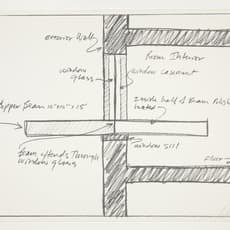 exterior Wall
Room Interior
window
glass
window casement
Inside half of Beam Polished
Beam extends Through
window glass
window sill
Floor